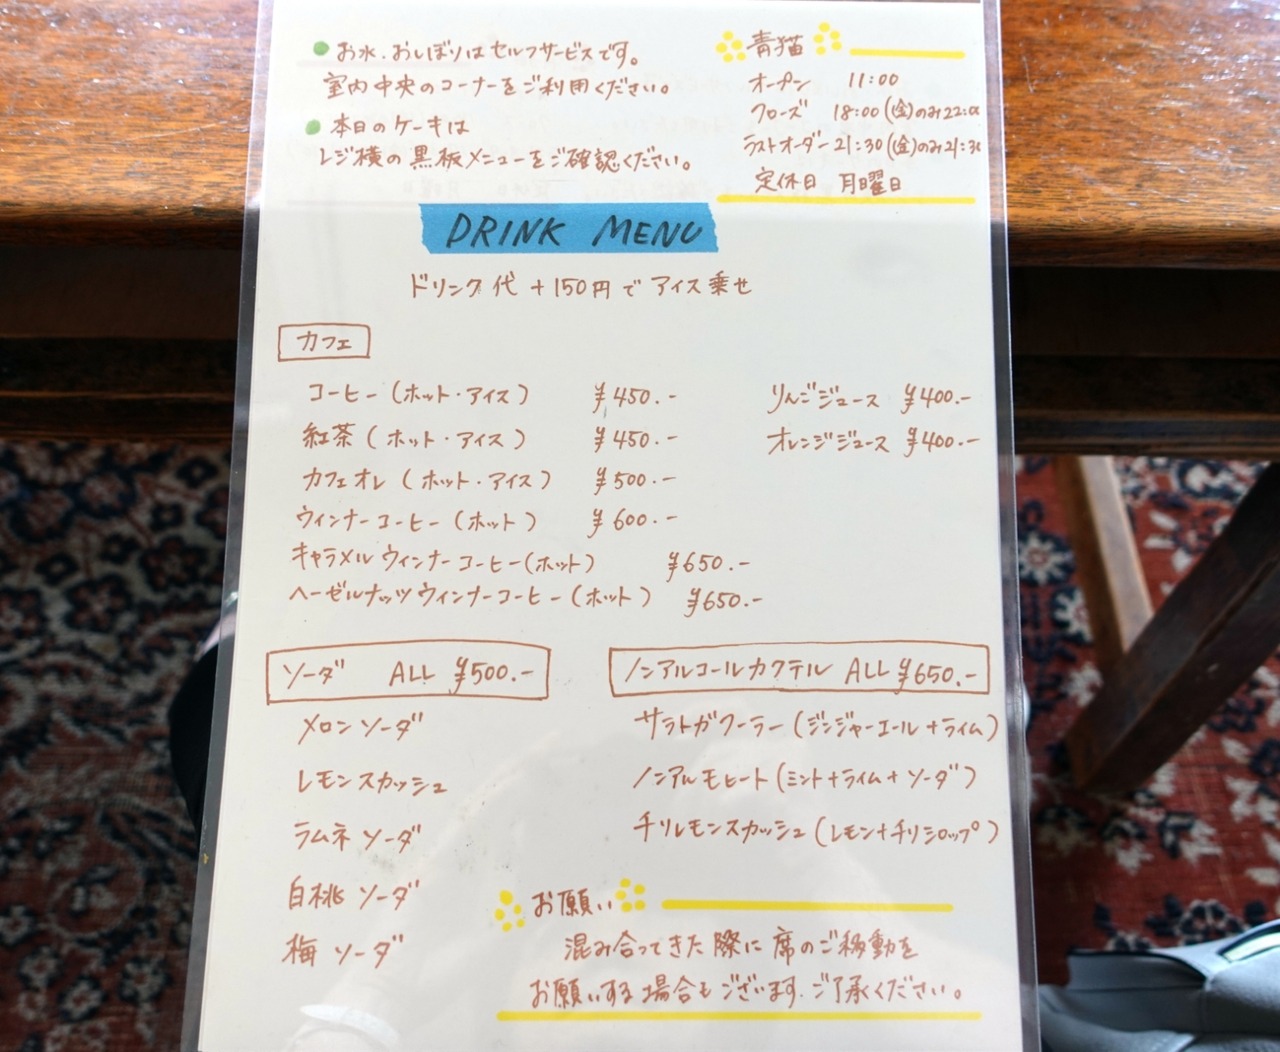 お水・おしぼりはセルフサービスです。
室内中央のコーナーをご利用ください。
本日のケーキは
レジ横の黒板メニューをご確認ください。
青猫
オープン 11:00
クローズ 18:00 (金)のみ22:00
ラストオーダー 21:30 (金)のみ21:30
定休日 月曜日
DRINK MENU
ドリンク代 +150円で アイス乗せ
カフェ
コーヒー (ホット・アイス) ¥450.-
紅茶 (ホット・アイス) ¥450.-
カフェオレ (ホット・アイス) ¥500.-
ウィンナーコーヒー (ホット) ¥600.-
キャラメルウィンナーコーヒー (ホット) ¥650.-
ヘーゼルナッツウィンナーコーヒー (ホット) ¥650.-
りんごジュース ¥400.-
オレンジジュース ¥400.-
ソーダ ALL ¥500.-
メロンソーダ
レモンスカッシュ
ラムネソーダ
白桃ソーダ
梅ソーダ
ノンアルコールカクテル ALL ¥650.-
サラトガクーラー (ジンジャーエール+ライム)
ノンアルモヒート (ミント+ライム+ソーダ)
チリレモンスカッシュ (レモン+チリシロップ)
お願い
混み合ってきた際に席のご移動を
お願いする場合もございます。ご了承ください。